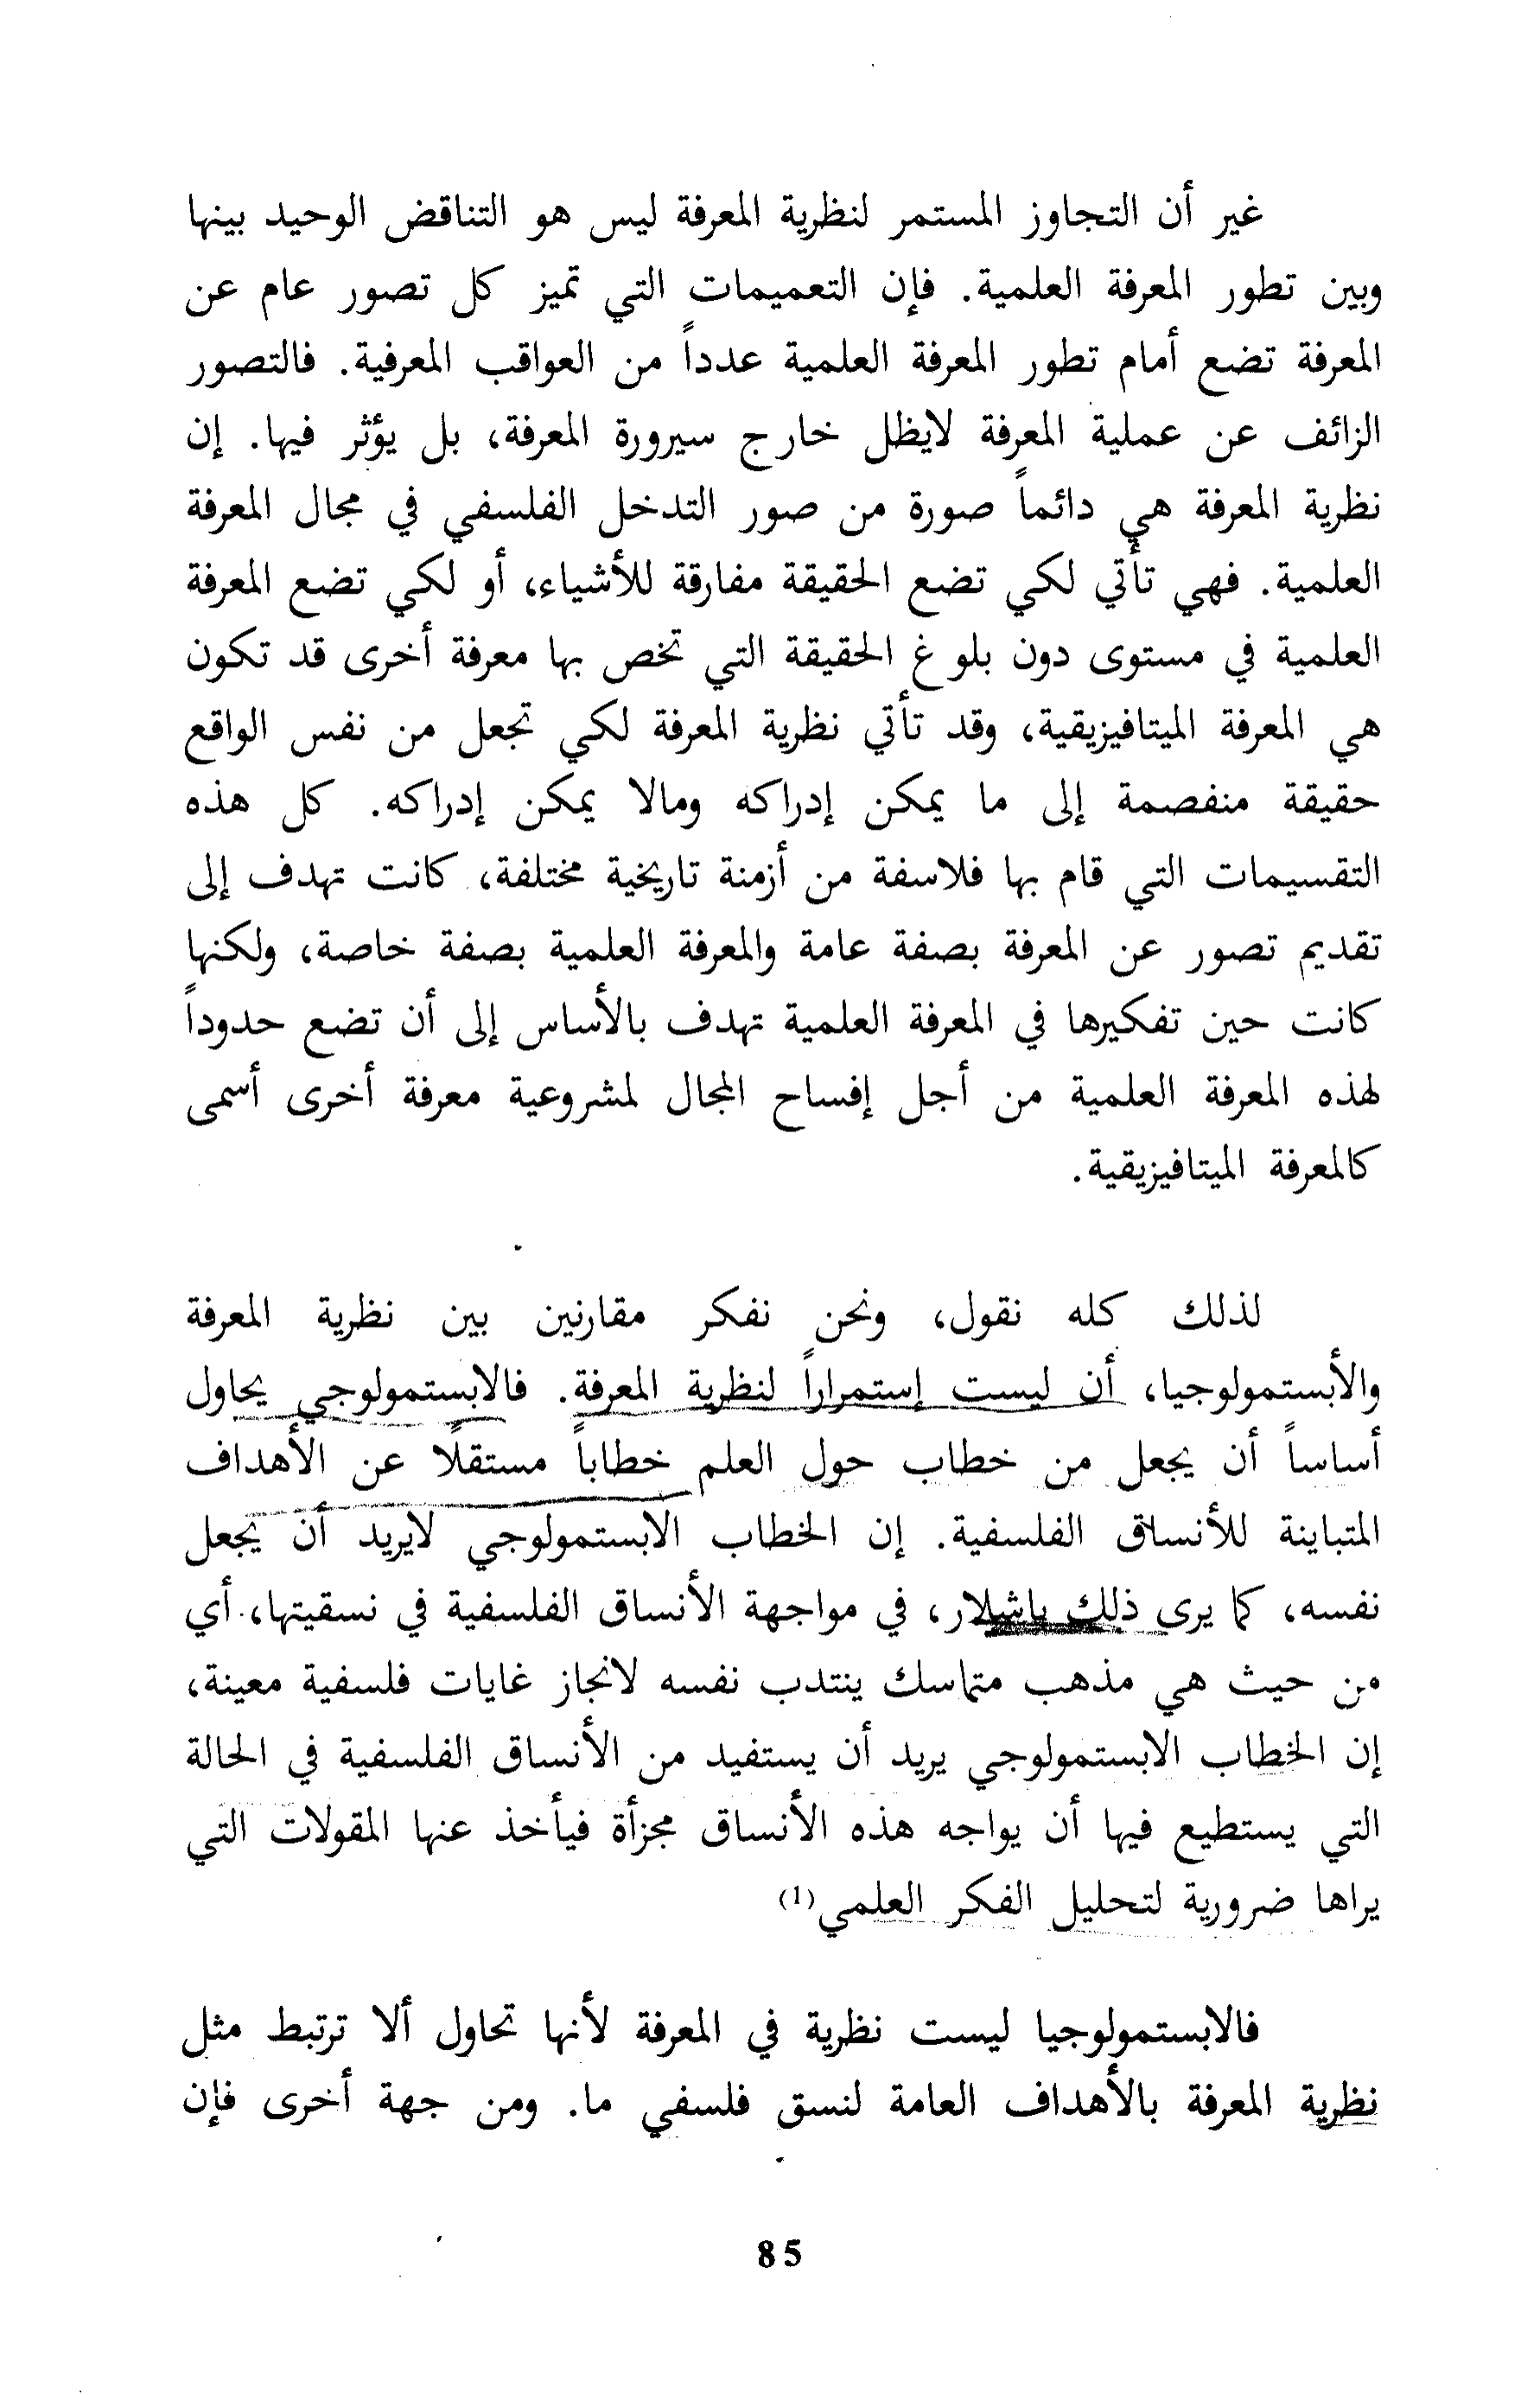 غير أن التجاوز المستمر لنظرية المعرفة ليس هو التناقض الوحيد بينها
وبين تطور المعرفة العلمية. فإن التعميمات التي تميز كل تصور عام عن
المعرفة تضع أمام تطور المعرفة العلمية عدداً من العواقب المعرفية. فالتصور
الزائف عن عملية المعرفة لايظل خارج سيرورة المعرفة، بل يؤثر فيها. إن
نظرية المعرفة هي دائماً صورة من صور التدخل الفلسفي في مجال المعرفة
العلمية. فهي تأتي لكي تضع الحقيقة مفارقة للأشياء، أو لكي تضع المعرفة
العلمية في مستوى دون بلوغ الحقيقة التي تخص بها معرفة أخرى قد تكون
هي المعرفة الميتافيزيقية، وقد تأتي نظرية المعرفة لكي تجعل من نفس الواقع
حقيقة منفصمة إلى ما يمكن إدراكه ومالا يمكن إدراكه. كل هذه
التقسيمات التي قام بها فلاسفة من أزمنة تاريخية مختلفة، كانت تهدف إلى
تقديم تصور عن المعرفة بصفة عامة والمعرفة العلمية بصفة خاصة، ولكنها
كانت حين تفكيرها في المعرفة العلمية تهدف بالأساس إلى أن تضع حدوداً
لهذه المعرفة العلمية من أجل إفساح المجال لمشروعية معرفة أخرى أسمى
كالمعرفة الميتافيزيقية.
لذلك كله نقول، ونحن نفكر مقارنين بين نظرية المعرفة
والأبستمولوجيا، أن ليست إستمراراً لنظرية المعرفة. فالابستمولوجي يحاول
أساساً أن يجعل من خطاب حول العلم خطاباً مستقلًا عن الأهداف
المتباينة للأنساق الفلسفية. إن الخطاب الابستمولوجي لايريد أن يجعل
نفسه، كما يرى ذلك باشلار، في مواجهة الأنساق الفلسفية في نسقيتها، أي
من حيث هي مذهب متماسك ينتدب نفسه لانجاز غايات فلسفية معينة،
إن الخطاب الابستمولوجي يريد أن يستفيد من الأنساق الفلسفية في الحالة
التي يستطيع فيها أن يواجه هذه الأنساق مجزأة فيأخذ عنها المقولات التي
يراها ضرورية لتحليل الفكر العلمي(1)
فالابستمولوجيا ليست نظرية في المعرفة لأنها تحاول ألا ترتبط مثل
نظرية المعرفة بالأهداف العامة لنسق فلسفي ما. ومن جهة أخرى فإن
85